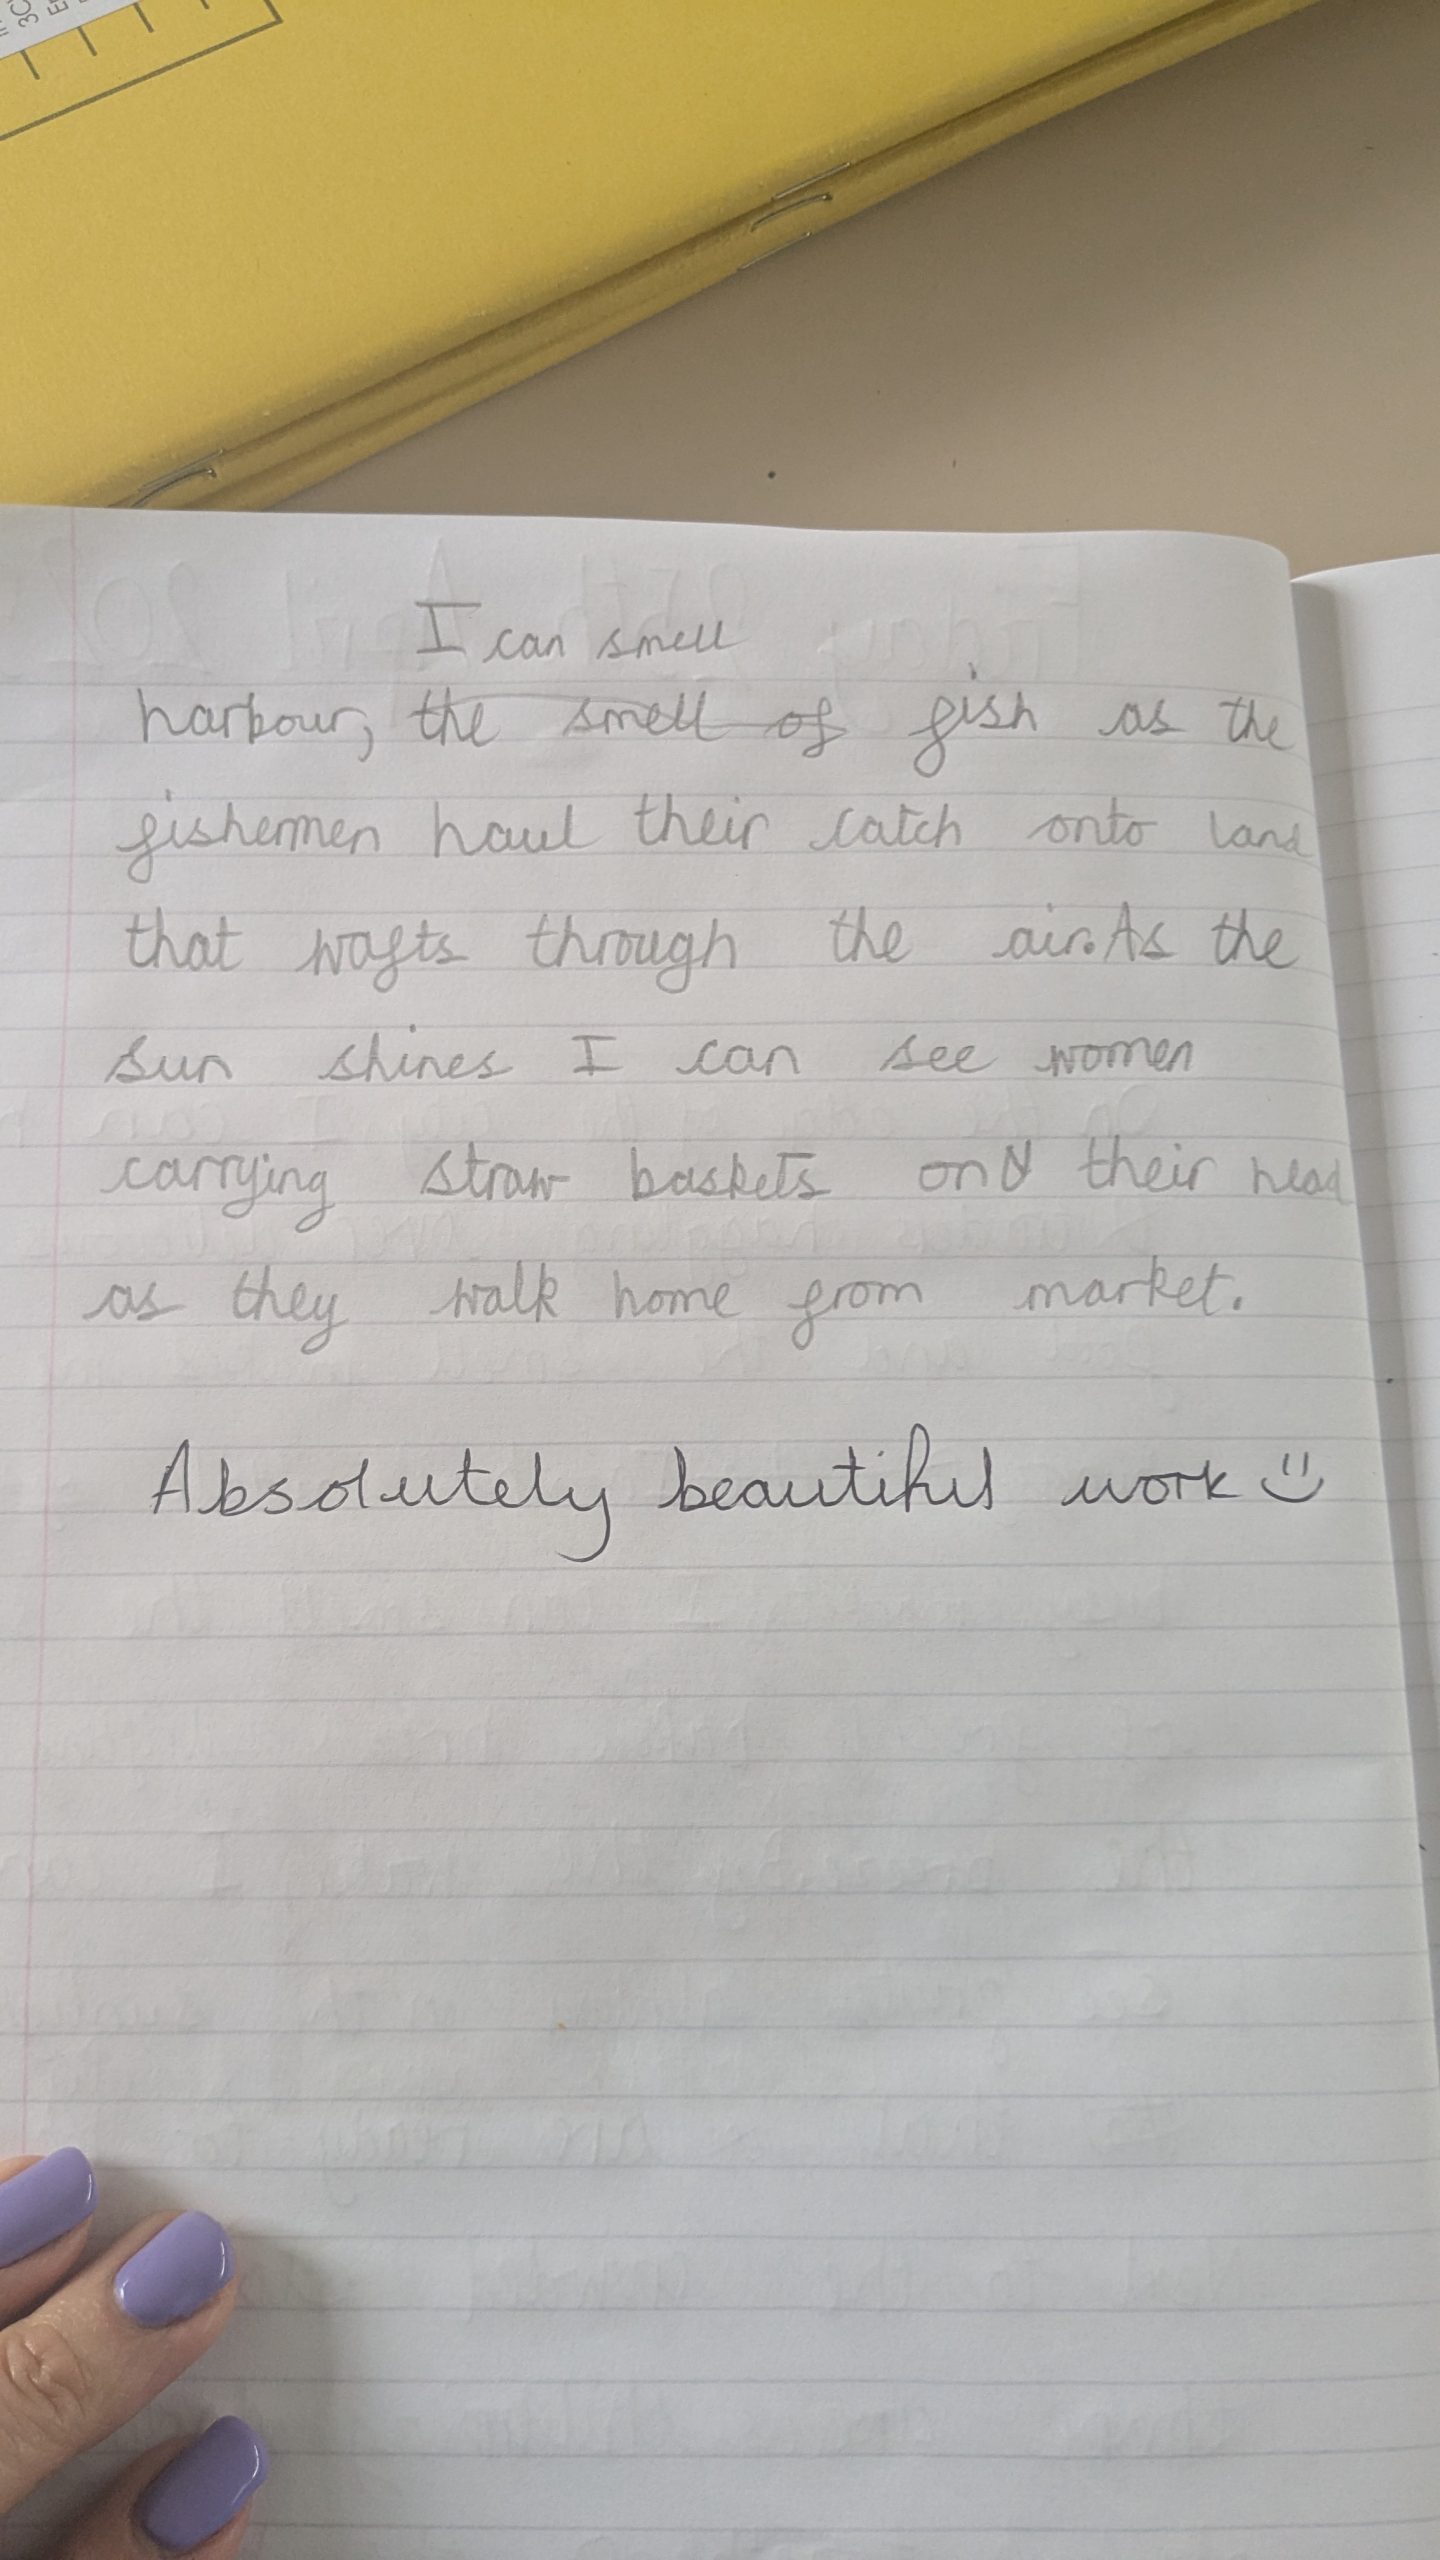 I can smell
harbour, the smell of fish as the
fishermen haul their catch onto land
that wafts through the air. As the
sun shines I can see women
carrying straw baskets on their head
as they walk home from market.
Absolutely beautiful work